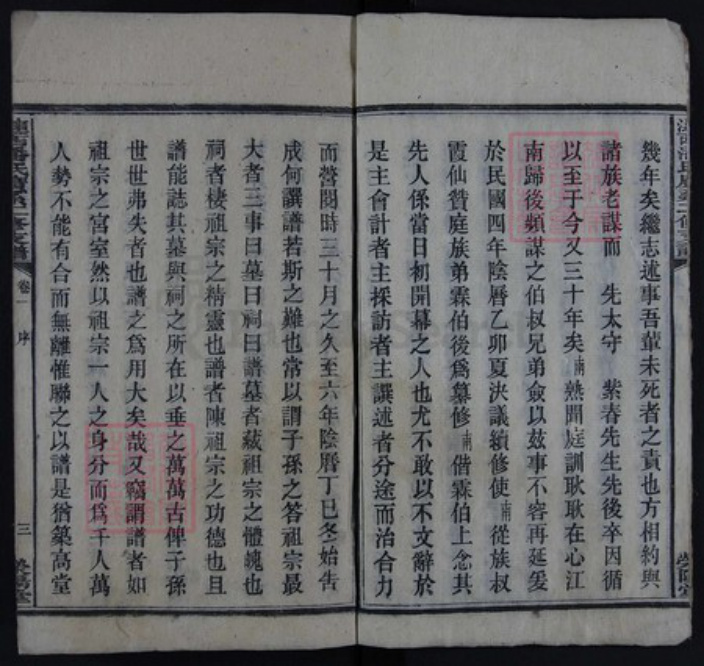 幾年矣繼志述事吾輩未死者之責也方相約與
諸族老謀而 先太守 紫春先生先後卒因循
以至于今又三十年矣南熟聞庭訓耿耿在心江
南歸後頻謀之伯叔兄弟僉以茲事不容再延爰
於民國四年陰曆乙卯夏決議續修使南從族叔
霞仙贊庭族弟霖伯後爲纂修南偕霖伯上念其
先人係當日初開幕之人也尤不敢以不文辭於
是主會計者主採訪者主譔述者分途而治合力
而營閱時三十月之久至六年陰曆丁巳冬始告
成何譔譜若斯之難也常以謂子孫之答祖宗最
大者三事曰墓曰祠曰譜墓者藏祖宗之體魄也
祠者棲祖宗之精靈也譜者陳祖宗之功德也且
譜能誌其墓與祠之所在以垂之萬萬古俾子孫
世世弗失者也譜之爲用大矣哉又竊謂譜者如
祖宗之宮室然以祖宗一人之身分而爲千人萬
人勢不能有合而無離惟聯之以譜是猶築高堂
潘氏
修支譜
卷一
序
三